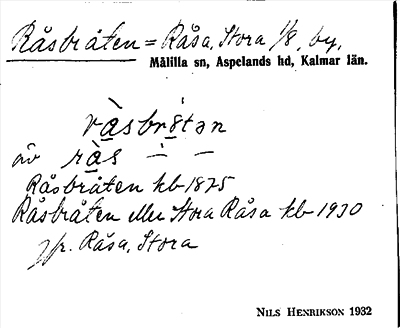 Råsbråten = Råsa, Stora 1/8, by,
Målilla sn, Aspelands hd, Kalmar län.
råsbrötən
äv rås – ÷ –
Råsbråten kb 1875
Råsbråten eller Stora Råsa kb 1930
jfr. Råsa, Stora
NILS HENRIKSON 1932